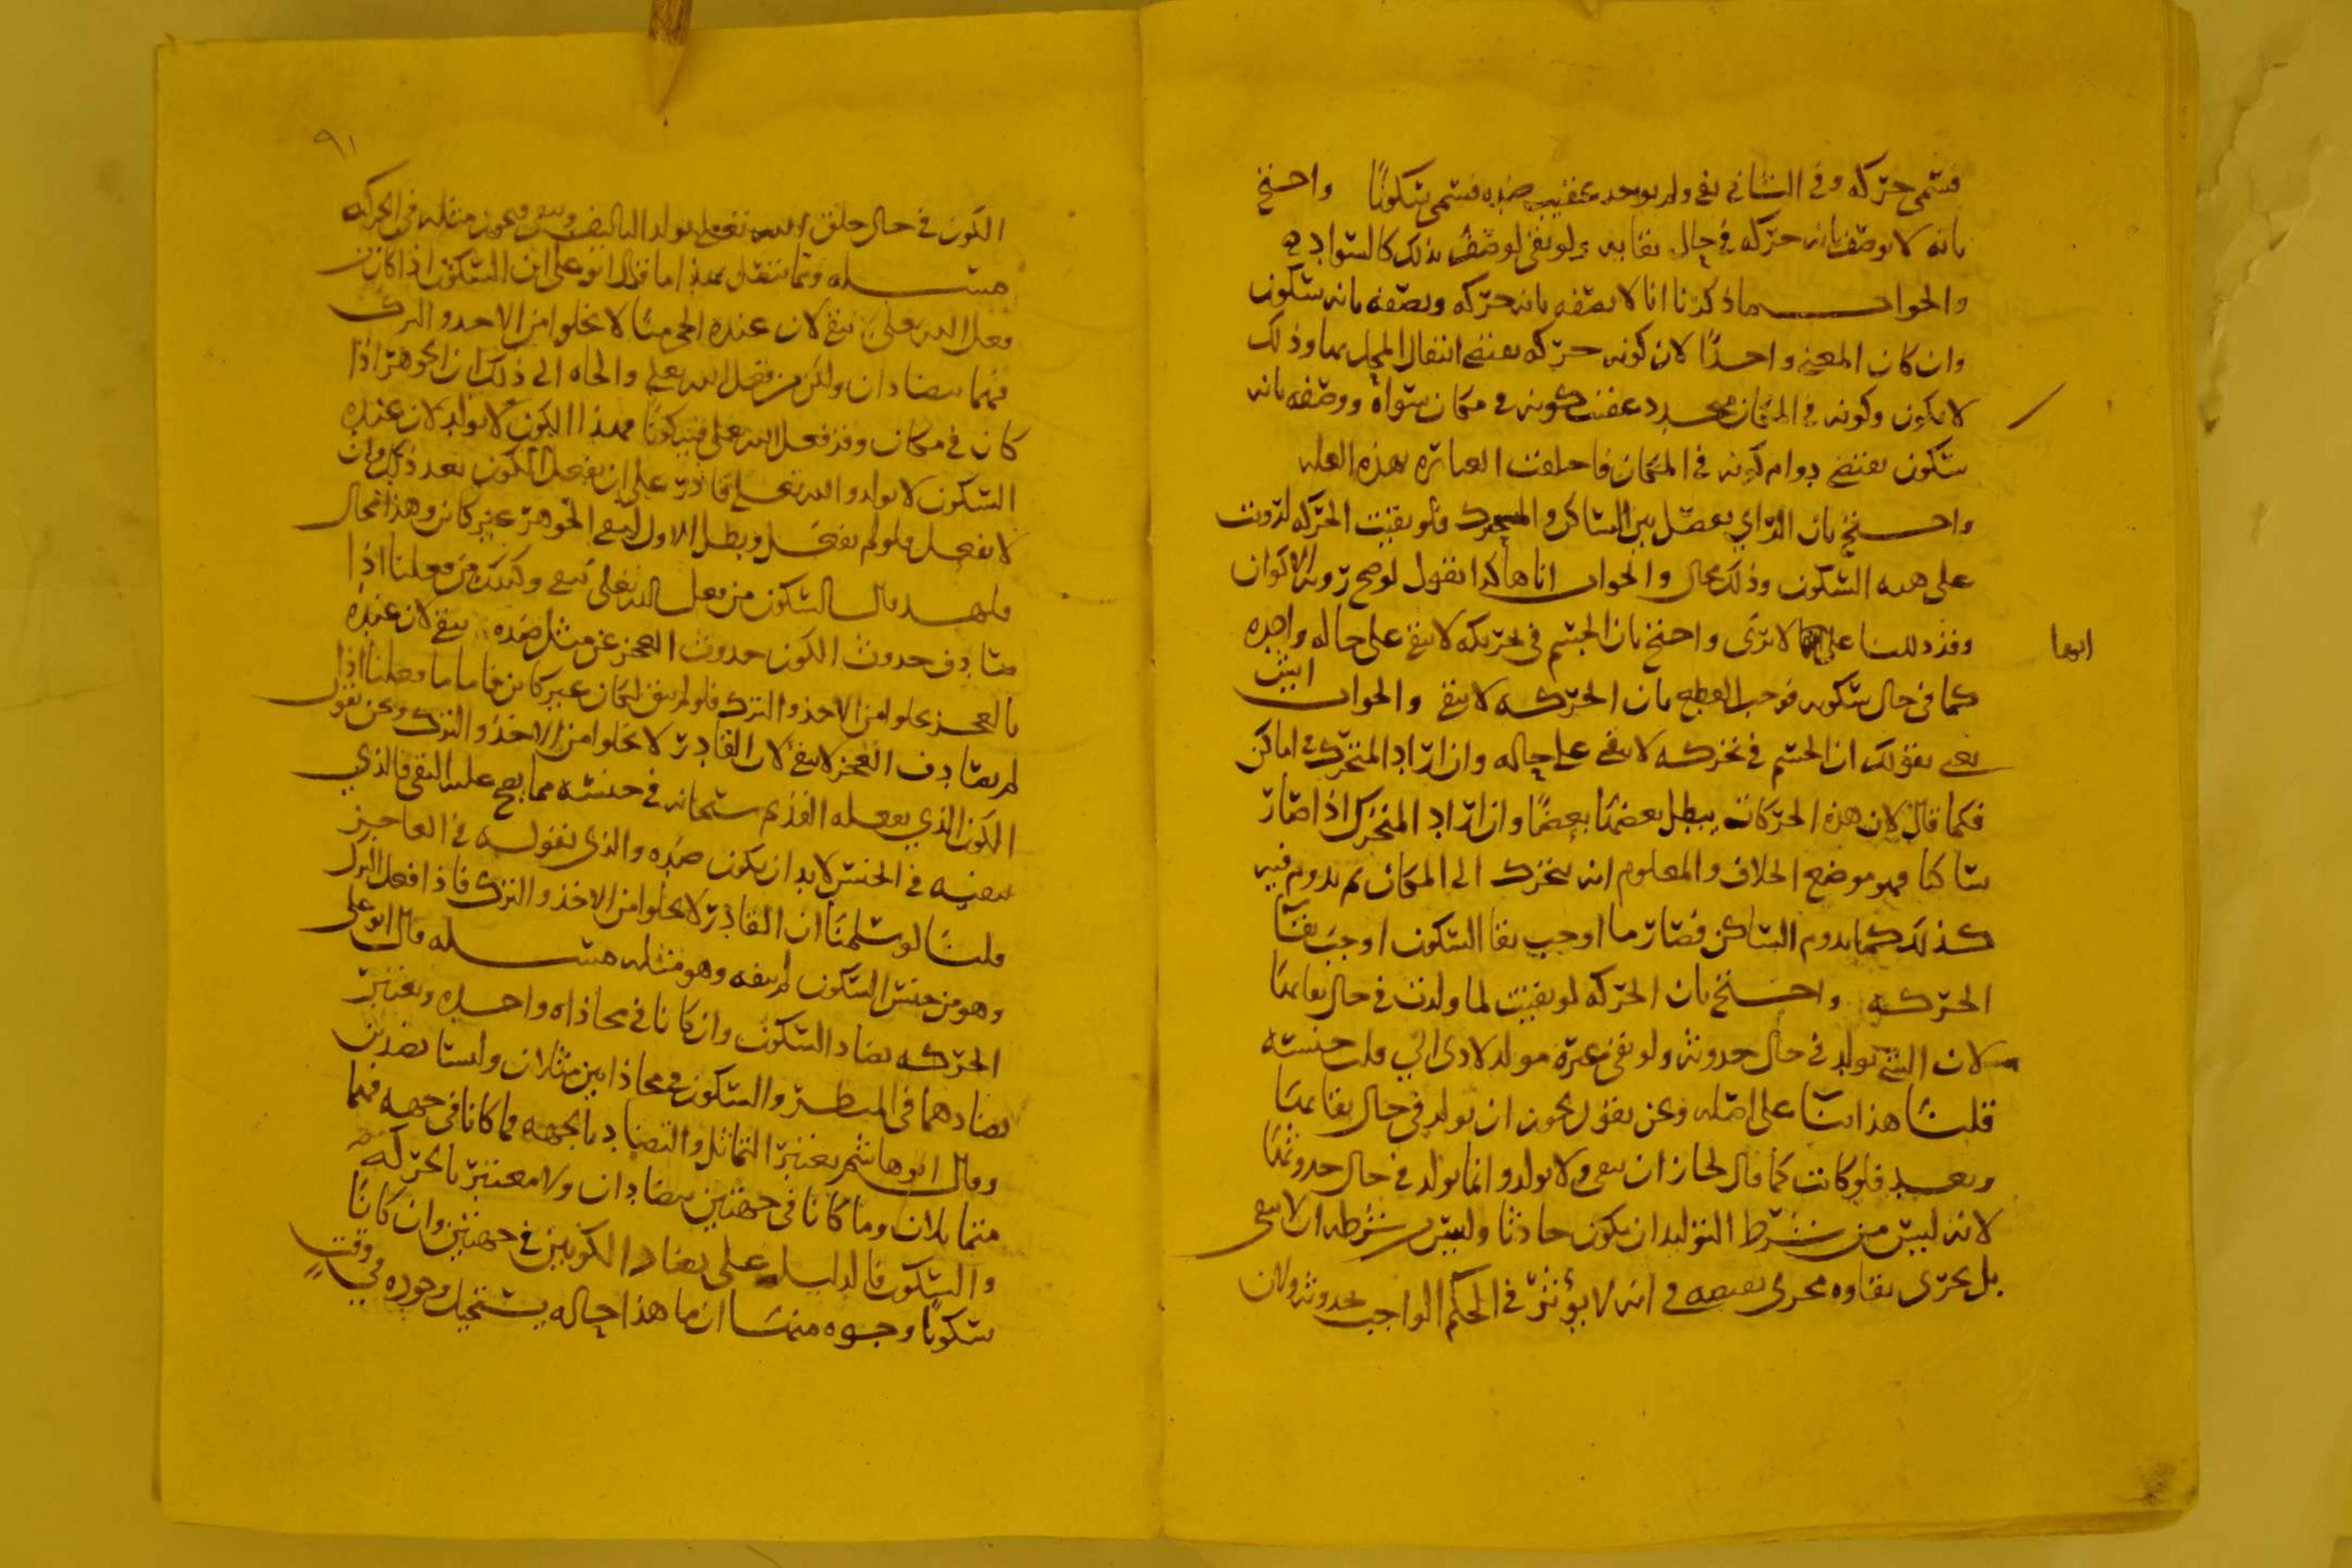 فسمى حركه وفي الثاني بقي ولم يوجد عقيب ضده فسمى سكونا واحتج
بانه لا يوصف بانه حركه في حال بقايه ولو بقى لوصف بذلك كالسواد
والجواب ما ذكرنا انا لا نصفه بانه حركه ونصفه بانه سكون
وان كان المعنى واحدا لان كونه حركه يقتضي انتقال المحل بها وذلك
لا يكون وكونه في المكان متجدد عقيب كونه في مكان سواه ووصفه بانه
سكون يقتضي دوام كونه في المكان فاختلفت العباره لهذه العله
واحتج بان الراي يفصل بين الساكن والمتحرك ولو بقيت الحركه لرويت
على هيه السكون وذلك محال والجواب انا هكذا نقول لو صح روية الاكوان
وقد دللنا على انها لا ترى واحتج بان الجسم في تحركه لا يبقى على حاله واحده
انها
كما في حال سكونه فوجب القطع بان الحركه لا تبقى والجواب ايش
تعني بقولك ان الجسم في تحركه لا يبقى على حاله وان اراد المتحرك في اماكن
فكما قال لان هذه الحركات يبطل بعضها بعضا وان اراد المتحرك اذا صار
ساكنا فهو موضع الخلاف والمعلوم انه يتحرك الى المكان ثم يدوم فيه
كذلك كما يدوم الساكن فصار ما اوجب بقا السكون اوجب بقا
الحركه واحتج بان الحركه لو بقيت لما ولدت في حال بقائها
لان الشي يولد في حال حدوثه ولو بقي غيره مولد لادى الى قلب جنسه
قلنا هذا بنا على اصله ونحن نقول يجوز ان يولد في حال بقائها
وبعد فلو كانت كما قال لجاز ان تبقى ولا يولد وانما يولد في حال حدوثها
لانه ليس من شرط التوليد ان يكون حادثا وليس من شرطه ان لا يبقى
بل يجرى بقاوه مجرى في انه لا يؤثر في الحكم الواجب عند حدوثه ولان
٩١
الكون في حال خلق الله تعلى يولد التاليف ويبقى ويجوز مثله في الحركه
مسله ومما يتصل بهذا ما قال ابو علي ان السكون اذا كان من
فعل الله تعلى يبقى لان عنده الحي منا لا يخلوا من الاخذ والترك
فهما يتضادان ولكن من فعل الله تعلى والجاه الى ذلك ان الجوهر اذا
كان في مكان وقد فعل الله تعلى فيه كونا فهذا الكون لا يولد لان عنده
السكون لا يولد والله تعلى قادر على ان يفعل الكون بعد ذلك وان
لا يفعل ولو لم يفعل وبطل الاول لبقي الجوهر غير كائن وهذا محال
فلهذا قال السكون من فعل الله تعلى يبقى وكذلك من فعلنا اذا
صادف حدوث الكون حدوث العجز عن مثل ضده يبقى لان عنده
بالعجز يخلوا من الاخذ والترك فلو لم يبق لكان غير كائن فاما ما فعلنا اذا
لم يصادف العجز لا يبقى لان القادر لا يخلوا من الاخذ والترك ونحن نقول
الكون الذي يفعله القديم سبحانه في جنسه مما يصح عليه البقى فالذي
ينفيه في الجنس لا بد ان يكون ضده والذي نقوله في العاجز
قلنا لو سلمنا ان القادر لا يخلوا من الاخذ والترك فاذا فعل الترك
وهو من جنس السكون لم ينفه وهو مثله مسله قال ابو علي
الحركه تضاد السكون وان كانا في محاذاه واحده ويعتبر
تضادهما في المنظر والسكون في محاذاتين مثلان وليسا بضدين
وقال ابو هاشم يعتبر التماثل والتضاد بالجهه فما كانا في جهه فهما
متماثلان وما كانا في جهتين يتضادان ولا معتبر بالحركه
والسكون فالدليل على تضاد الكونين في جهتين وان كانا
سكونا وجوه منها ان ما هذا حاله يستحيل وجوده في وقت